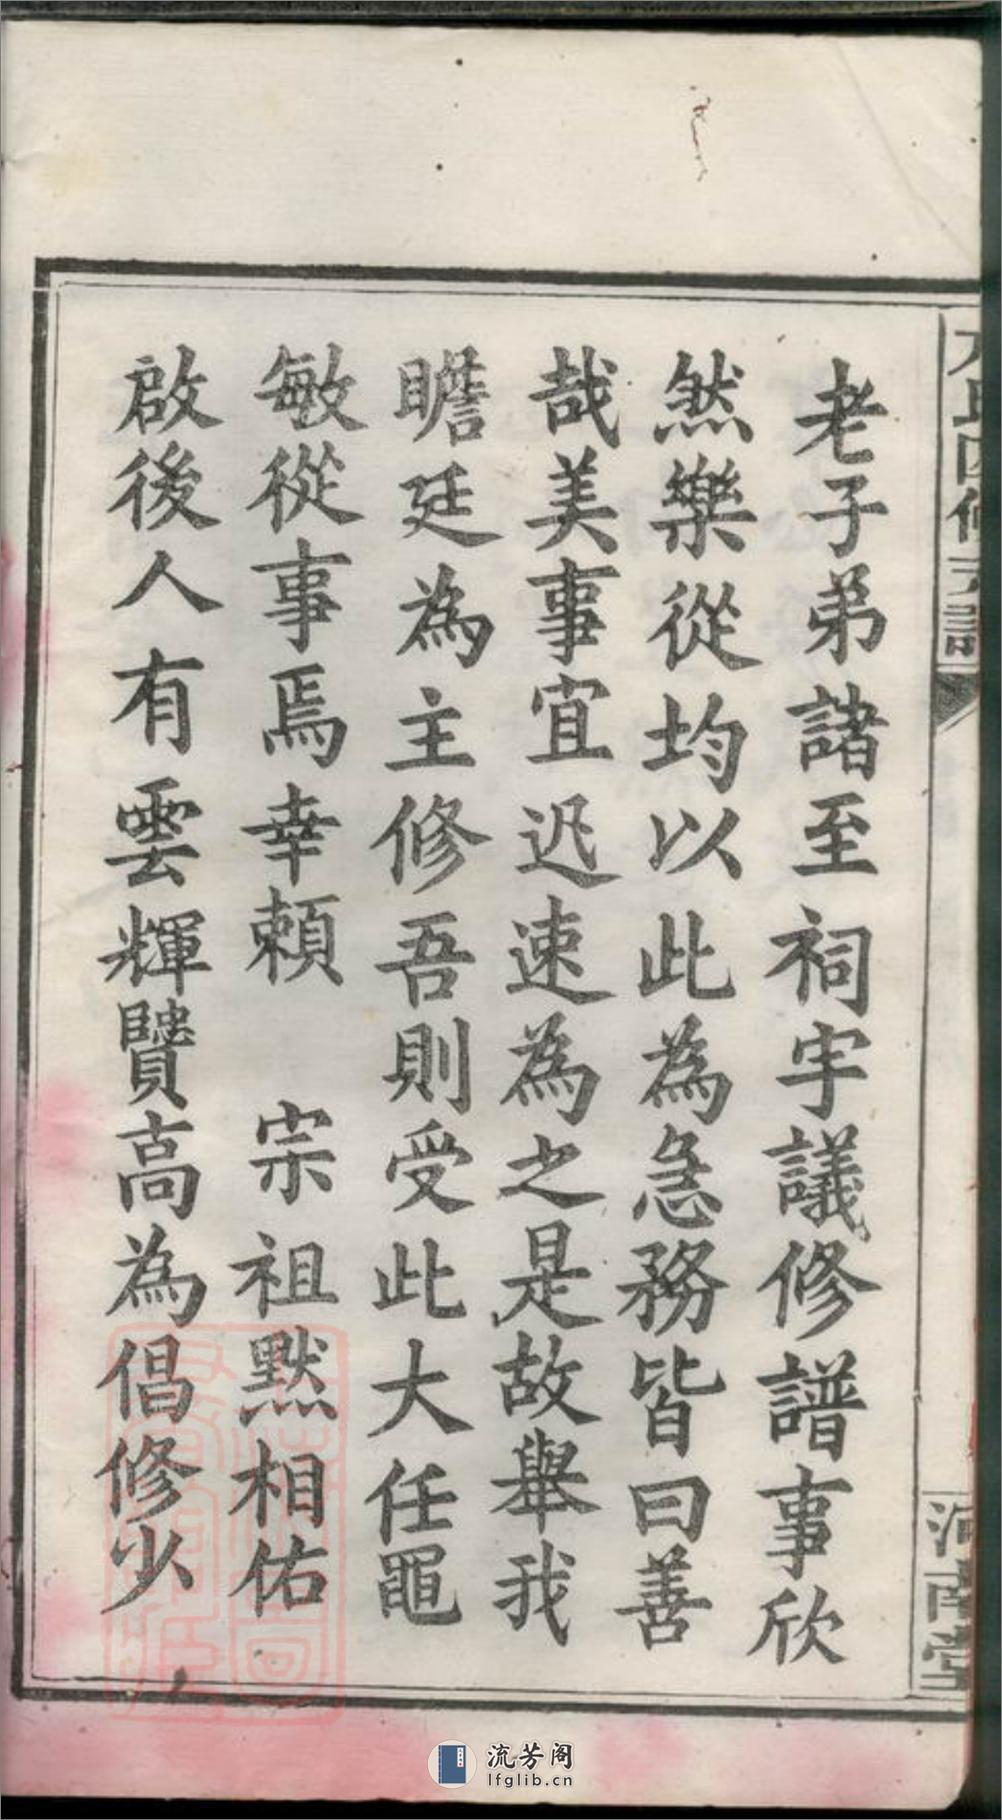 老子弟諸至祠宇議修譜事欣
然樂從均以此為急務皆曰善
哉美事宜迅速為之是故舉我
瞻廷為主修吾則受此大任黽
敏從事焉幸賴　宗祖默相佑
啟後人有雲輝贒高為倡修少
河南堂
流芳阁
lfglib.cn